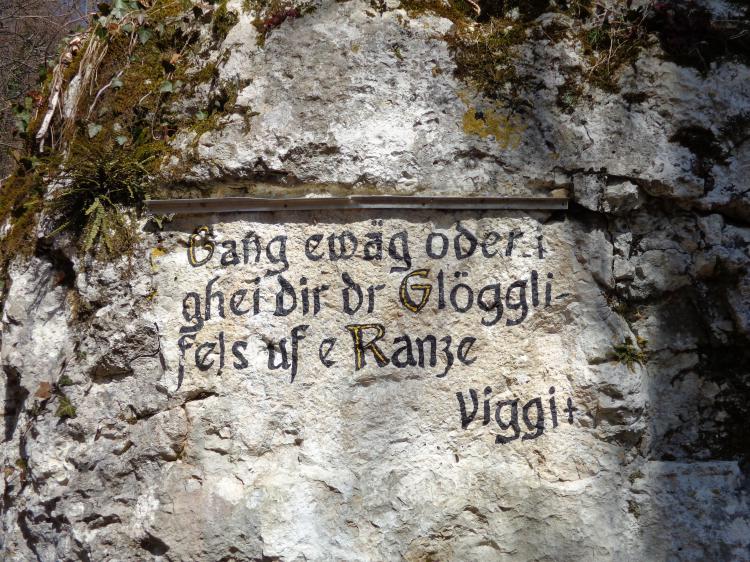 Gang ewäg oder i
ghei dir dr Glöggli-
fels uf e Ranze
Viggi+